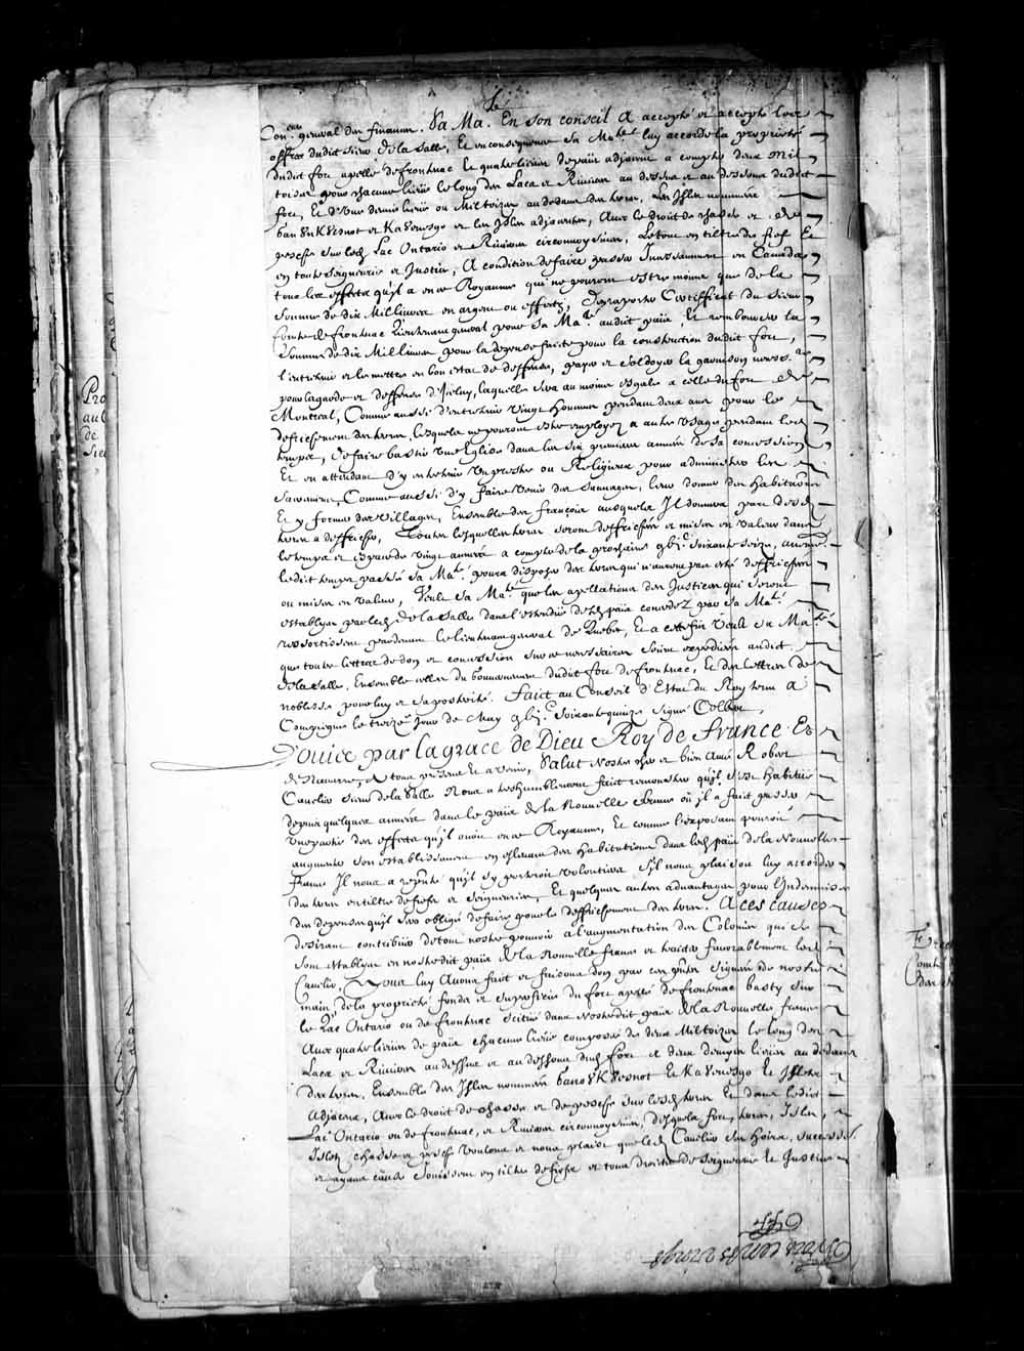 Le
Con.er general des finances. Sa Ma. En son conseil a accepté et accepte les
offres dudit sieur de la Salle, Et en consequence Sa Ma.té luy accorde la proprieté
dudit fort apellé de frontenac Et quatre lieües de païs adjacent a compter deux mil
toises pour chacune lieüe le long des Lacs et Rivieres au dessus et au dessous dudit
fort, Et d'une demie lieüe ou Mil toizes au dedans des terres, Les Isles nommées
Ganounkouesnot et Kaouenesgo et les Isles adjacentes, Avec le droit de chasse et de
pesche sur led. Lac Ontario et Rivieres circonvoysines, Le tout en tiltre de fief Et
en toute seigneurie et Justice, A condition de faire passer Incessamment en Canada
tous les effects qu'il a en ce Royaume qui ne pourront estre moins que de la
somme de dix Mil livres en argent ou effects, Degraporter Certifficat du sieur
Comte de frontenac Lieutenant general pour Sa Ma.té audit païs, Et rembourser la
somme de dix Mil livres pour la depense faite pour la construction dudit fort,
l'entretenir et le mettre en bon estat de deffense, payer et soldoyer la garnison necess.re
pour la garde et deffense d'iceluy, laquelle sera au moins esgale a celle du fort de
Montreal, Comme aussi d'entretenir vingt hommes pendant deux ans pour le
defrichement des terres, lesquels ne pourront estre employez a autre usage pendant led.
temps, De faire bastir une Eglise dans les six premieres années de sa concession
Et en attendant d'y entretenir un prestre ou Religieux pour administrer les
sacremens, Comme aussi d'y faire venir des sauvages, leur donner des habitations
Et y former des villages, Ensemble des françois ausquels Il donnera part desd.
terres a deffricher, Toutes lesquelles terres seront deffrichées et mises en valeur dans
le temps et espace de vingt années a compter de la prochaine gbj.c soixante seize, autrem.t
ledit temps passé Sa Ma.té poura disposer des terres qui n'auront pas esté deffrichées
ou mises en valeur, Veut Sa Ma.té que les apellations des Justices qui seront
establyes par led. de la Salle dans l'estendüe desd. païs concedez par Sa Ma.té
ressortissent pardevant le lieutenant general de Quebec, Et a cette fin Veut Sa Ma.té
que toutes lettres de don et concession sur ce necessaires soient expediées audit
de la Salle, Ensemble celles du gouvernement dudit fort de frontenac, Et des Lettres de
noblesse pour luy et sa posterité. Faict au Conseil d'Estat du Roy tenu a
Compiegne le treize.e Jour de May gbj.c soixante quinze signé Colbert,
Louice par la grace de Dieu Roy de france Et
de Navarre, A tous presens Et a venir, Salut Nostre cher et bien Amé Robert
Cavelier sieur de la Salle Nous a tres humblement fait remonstrer qu'il s'est habitüé
depuis quelques années dans le païs de la Nouvelle France où il a fait passer
une partie des effects qu'il avoit en ce Royaume, Et comme l'exposant pouroit
augmenter son establissement en y faisant des habitations dans led. païs de la Nouvelle
france Il nous a representé qu'il s'y porteroit volontiers s'il nous plaisoit luy accorder
des terres en tiltre de fiefs et seigneuries, Et quelques autres advantages pour l'Indemniser
des depenses qu'il sera obligé de faire pour le deffrichement des terres. A ces causes
desirant contribüer de tout nostre pouvoir a l'augmentation des Colonies qui se
sont establyes en nostredit païs de la Nouvelle france et traiter favorablement led.
Cavelier. Nous luy Avons fait et faisons don par ces p.ntes signées de nostre
main, de la proprieté fonds et superficie du fort apellé de frontenac basty sur
le Lac Ontario ou de frontenac scitüé dans Nostredit païs de la Nouvelle france
Avec quatre lieües de païs chacune lieüe composée de deux Mil toizes le long des
Lacs et Rivieres au dessus et au dessous dud. fort et deux demyes lieües au dedans
des terres, Ensemble des Isles nommées Ganounkouesnot Et Kaouenesgo Et Isletes
Adjacens, Avec le droit de chasse et de pesche sur lesd. terres Et dans ledit
Lac Ontario ou de frontenac, et Rivieres circonvoysines, desquels fort, terres, Isles,
Isletz chasse et pesche Voulons et nous plaist que led. Cavelier ses hoirs, successeurs
et ayans cause Jouissent en tiltre de fiefs et tous droits de seigneurie Et Justice